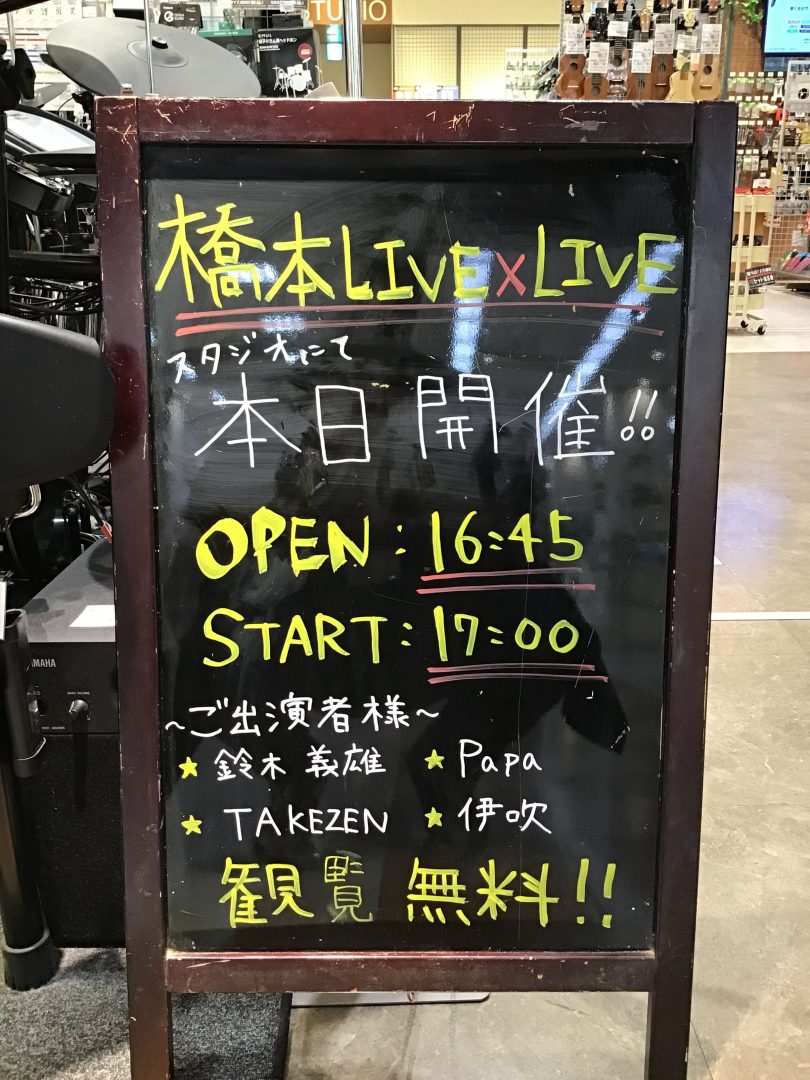 TUDIO
橋本LIVE×LIVE
スタジオにて
本日開催!!
OPEN:16:45
START:17:00
~ご出演者様~
★ 鈴木 義雄 ★ Papa
★ TAKEZEN ★ 伊吹
観覧 無料!!
YAMAHA